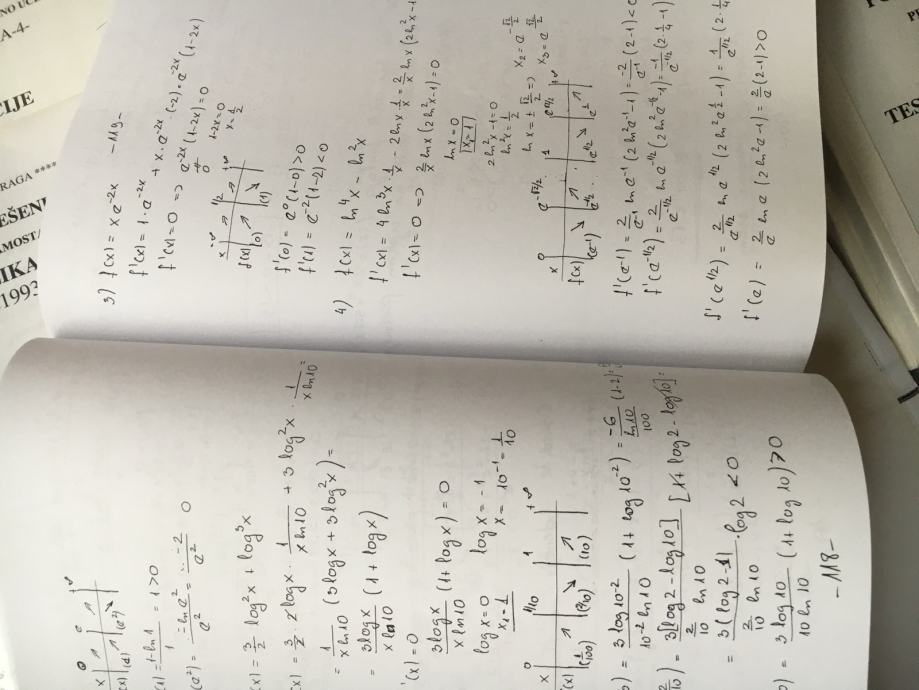 -119-
3) f(x) = x e^{-2x}
f'(x) = 1·e^{-2x} + x·e^{-2x}·(-2) = e^{-2x}(1-2x)
f'(x) = 0 => e^{-2x}(1-2x) = 0
≠ 0
1-2x=0
x = 1/2
x -∞ 1/2 +∞
f(x) (0) ↗ (1) ↘
f'(0) = e^0(1-0) > 0
f'(1) = e^{-2}(1-2) < 0
4) f(x) = ln^4 x - ln^2 x
f'(x) = 4 ln^3 x · 1/x - 2 ln x · 1/x = 2/x ln x (2 ln^2 x - 1
f'(x) = 0 => 2/x ln x (2 ln^2 x - 1) = 0
ln x = 0
x_1 = 1
2 ln^2 x - 1 = 0
ln^2 x = 1/2
ln x = ± √2/2 => x_2 = e^{-√2/2}
x_3 = e^{√2/2}
x 0 e^{-√2/2} 1 e^{√2/2} +∞
f(x) (e^{-1}) ↘ e^{-1/2} ↗ e^{1/2} ↘ e^1 ↗
f'(e^{-1}) = 2/e^{-1} ln e^{-1} (2 ln^2 e^{-1} - 1) = -2/e^{-1} (2-1) < 0
f'(e^{-1/2}) = 2/e^{-1/2} ln e^{-1/2} (2 ln^2 e^{-1/2} - 1) = -1/e^{-1/2} (2·1/4 - 1)
f'(e^{1/2}) = 2/e^{1/2} ln e^{1/2} (2 ln^2 e^{1/2} - 1) = 1/e^{1/2} (2·1/4
f'(e) = 2/e ln e (2 ln^2 e - 1) = 2/e (2-1) > 0
x 0 e +∞
(x) (1) ↗ (e^2) ↘
(1) = 1-ln 1 / 1 = 1 > 0
(e^2) = -ln e^2 / e^2 = -2 / e^2 0
(x) = 3/2 log^2 x + log^3 x
(x) = 3/2 · 2 log x · 1/(x ln 10) + 3 log^2 x · 1/(x ln 10) =
= 1/(x ln 10) (3 log x + 3 log^2 x) =
= 3 log x/(x ln 10) (1 + log x)
'(x) = 0
3 log x/(x ln 10) (1 + log x) = 0
log x = 0
x_1 = 1
log x = -1
x = 10^{-1} = 1/10
x 0 1/10 1 +∞
(x) (1/100) ↗ (2/10) ↘ (10) ↗
) = 3 log 10^{-2}/(10^{-2} ln 10) (1 + log 10^{-2}) = -6/(ln 10/100) (1-2) =
2/10) = 3[log 2 - log 10]/(2/10 ln 10) [1 + log 2 - log 10] =
= 3(log 2 - 1)/(2/10 ln 10) · log 2 < 0
) = 3 log 10/(10 ln 10) (1 + log 10) > 0
-118-
A-4-
CIJE
RAGA ****
EŠENI
AMOSTA
IKA
1993
PO
TES